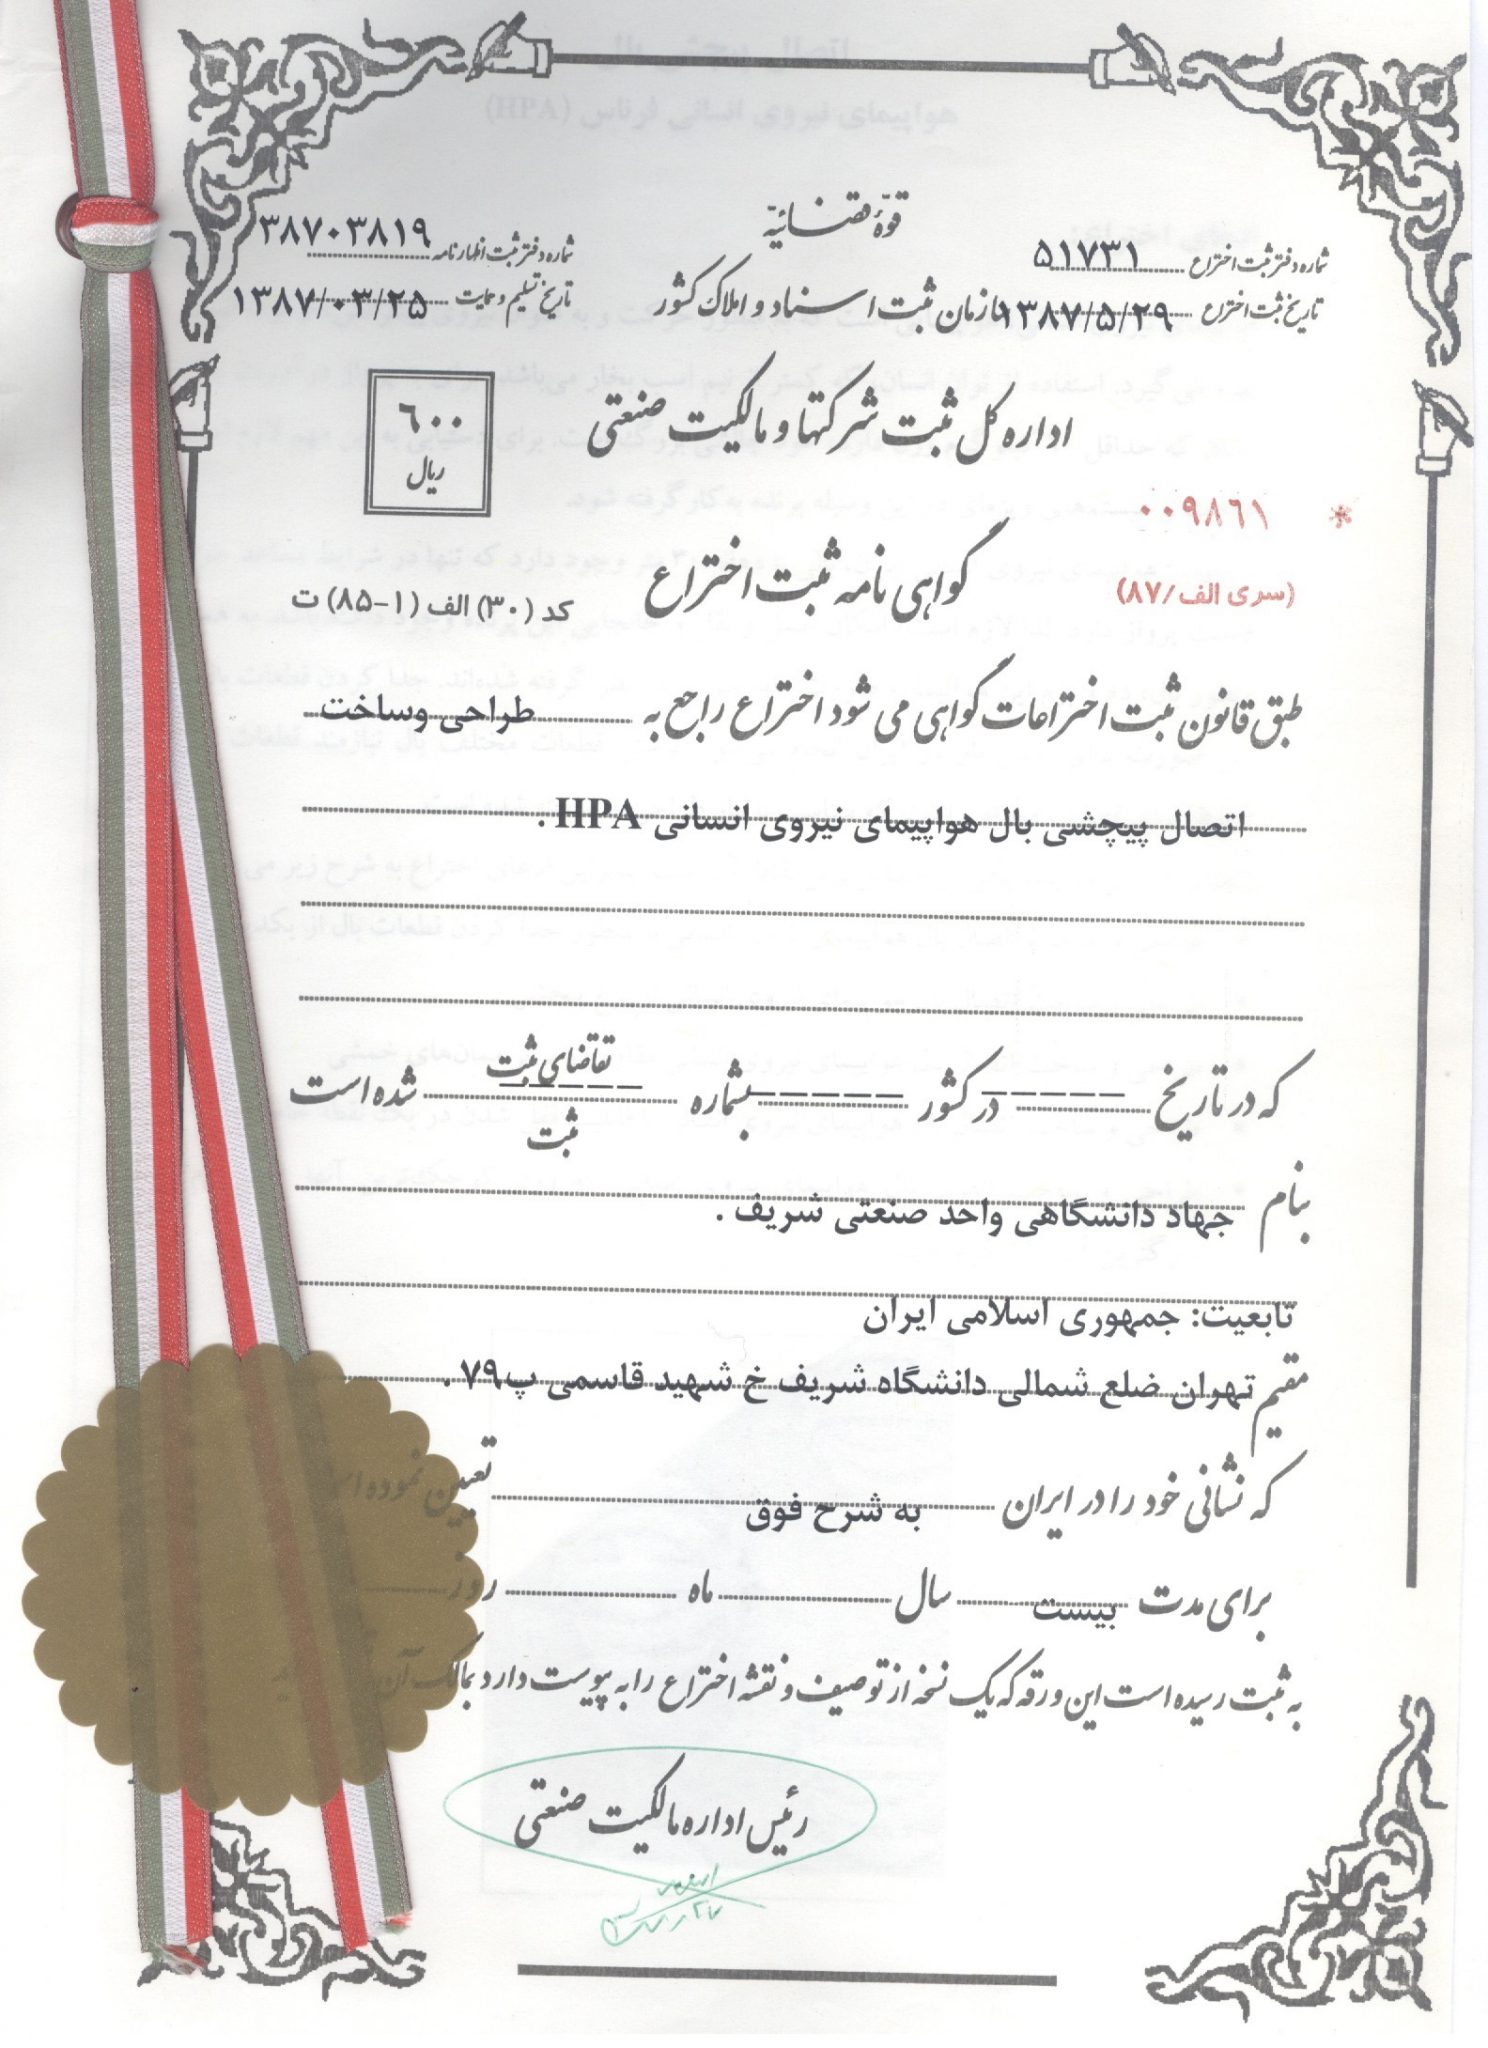 قوّهٔ قضائیّه
شماره دفتر ثبت اختراع ۵۱۷۳۱
شماره دفتر ثبت اظهارنامه ۳۸۷۰۳۸۱۹
تاریخ ثبت اختراع ۱۳۸۷/۵/۲۹
سازمان ثبت اسناد و املاک کشور
تاریخ تسلیم و حمایت ۱۳۸۷/۰۳/۲۵
اداره کل ثبت شرکتها و مالکیت صنعتی
۶۰۰
ریال
* ۰۰۹۸۶۱
(سری الف/۸۷)
گواهی نامه ثبت اختراع
کد (۳۰) الف (۱-۸۵) ت
طبق قانون ثبت اختراعات گواهی می شود اختراع راجع به طراحی وساخت
اتصال پیچشی بال هواپیمای نیروی انسانی HPA .
که در تاریخ ------ در کشور ------ بشماره ------ تقاضای ثبت شده است
ثبت
بنام جهاد دانشگاهی واحد صنعتی شریف .
تابعیت: جمهوری اسلامی ایران
مقیم تهران ضلع شمالی دانشگاه شریف خ شهید قاسمی پ۷۹ .
که نشانی خود را در ایران به شرح فوق تعیین نموده
برای مدت بیست سال ماه روز
به ثبت رسیده است این ورقه که یک نسخه از توصیف و نقشه اختراع را به پیوست دارد بمالک آن
رئیس اداره مالکیت صنعتی